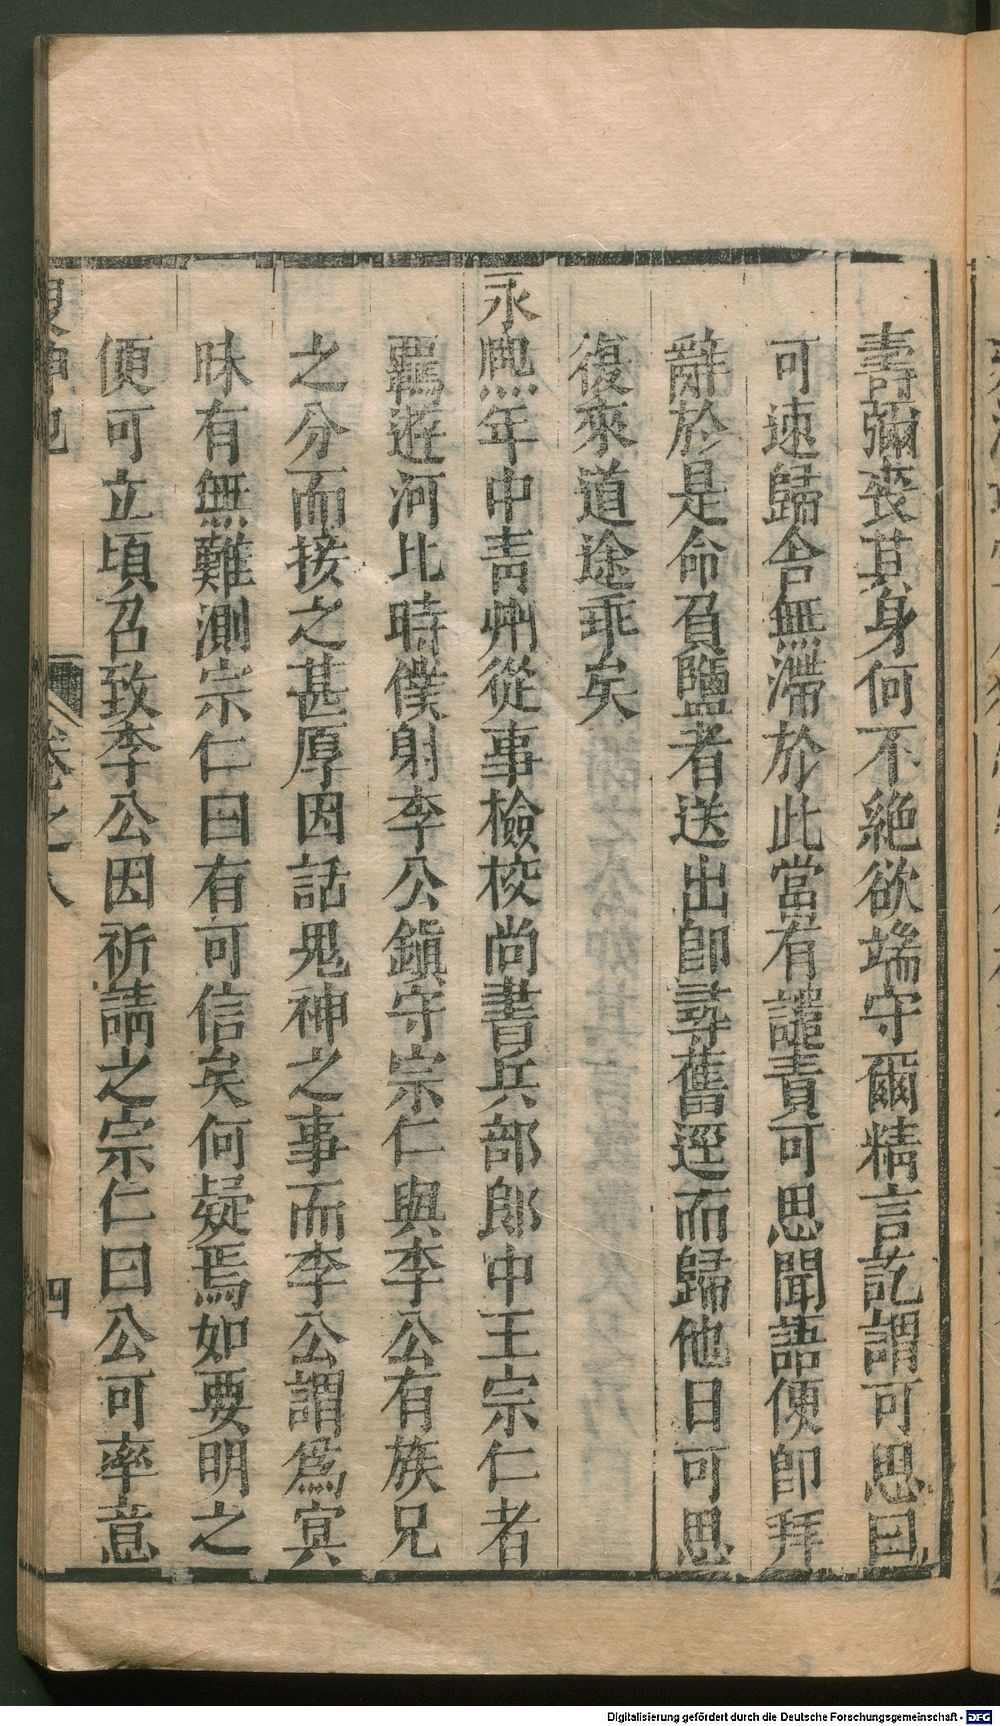 壽彌喪其身何不絕欲端守爾精言訖謂可思曰
可速歸舍無滯於此當有譴責可思聞語便即拜
辭於是命負鹽者送出即尋舊逕而歸他日可思
復來道途乖矣
永熈年中靑州從事檢校尚書兵部郎中王宗仁者
羈遊河北時僕射李公鎭守宗仁與李公有族兄
之分而接之甚厚因話鬼神之事而李公謂爲冥
昧有無難測宗仁曰有可信矣何疑焉如要明之
便可立頃召致李公因祈請之宗仁曰公可率意
搜神記 卷之八 四
Digitalisierung gefördert durch die Deutsche Forschungsgemeinschaft - DFG